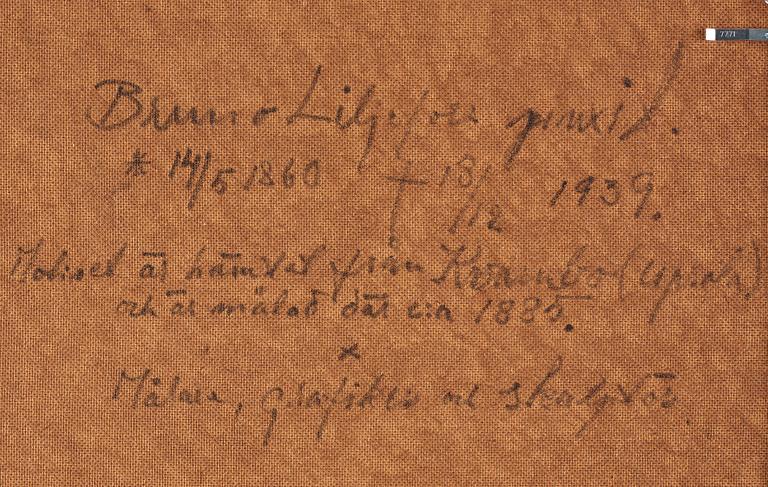 7771
Bruno Liljefors pinxit.
* 14/5 1860 † 18/12 1939.
Motivet är hämtat från Kvarnbo (Upsala)
och är målat där c:a 1885.
x
Målare, grafiker och skulptör.